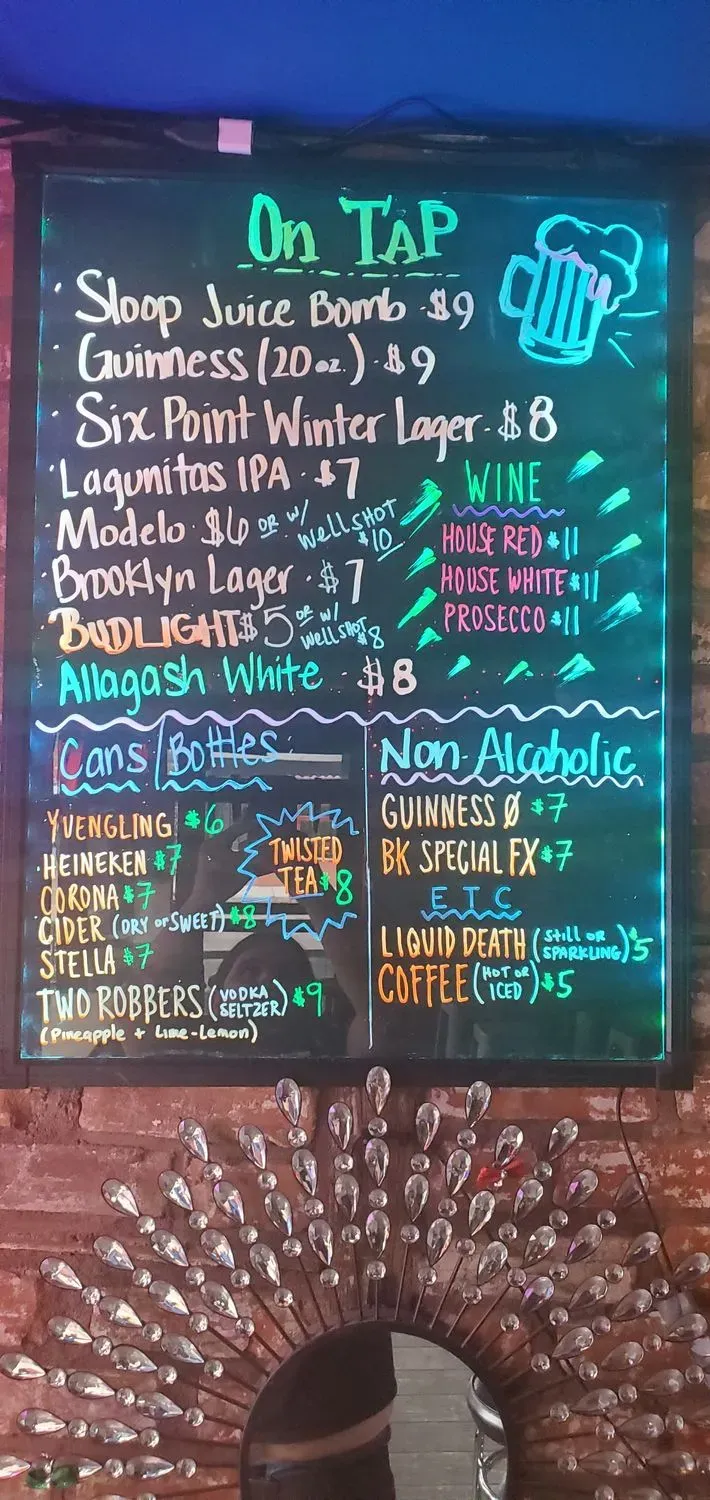 On TAP
· Sloop Juice Bomb · $9
· Guinness (20 oz.) · $9
· Six Point Winter Lager · $8
· Lagunitas IPA · $7
· Modelo $6 or w/ Well SHOT $10
· Brooklyn Lager · $7
· BUD LIGHT $5 or w/ Well SHOT $8
Allagash White · $8
WINE
HOUSE RED $11
HOUSE WHITE $11
PROSECCO $11
Cans/Bottles
YUENGLING $6
·HEINEKEN $7
CORONA $7
CIDER (DRY or SWEET) $8
STELLA $7
TWO ROBBERS (VODKA SELTZER) $9
(Pineapple + Lime-Lemon)
TWISTED
TEA $8
Non-Alcoholic
GUINNESS Ø $7
BK SPECIAL FX $7
ETC
LIQUID DEATH (Still or SPARKLING) $5
COFFEE (HOT OR ICED) $5